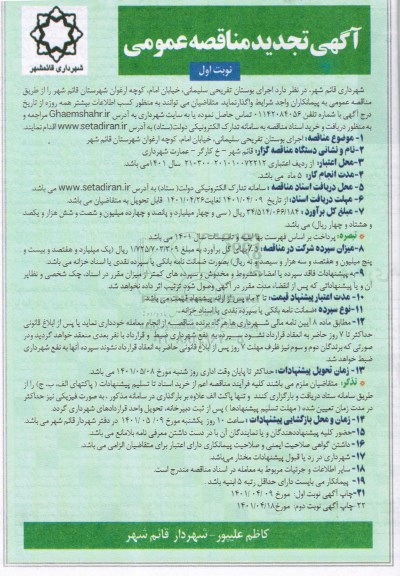 آگهی تجدید مناقصه عمومی
نوبت اول
شهرداری قائمشهر
شهرداری قائم شهر، در نظر دارد اجرای بوستان تفریحی سلیمانی، خیابان امام، کوچه ارغوان شهرستان قائم شهر را از طریق
مناقصه عمومی به پیمانکاران واجد شرایط واگذار نماید. متقاضیان می توانند به منظور کسب اطلاعات بیشتر همه روزه از تاریخ
درج آگهی با شماره تلفن ۰۱۱۴۲۰۸۴۰۵۶ تماس حاصل نموده یا به سایت شهرداری به آدرس Ghaemshahr.ir مراجعه و
به منظور دریافت و خرید اسناد مناقصه به سامانه تدارک الکترونیکی دولت(ستاد) به آدرس www.setadiran.ir اقدام نمایند.
۱- موضوع مناقصه: اجرای بوستان تفریحی سلیمانی، خیابان امام، کوچه ارغوان شهرستان قائم شهر.
۲-نام و نشانی دستگاه مناقصه گزار: قائم شهر - خ کارگر - عمارت شهرداری
۳-محل اعتبار: از ردیف اعتباری ۲۰۱۰۱۰۰۷۲۲۱۲ ۲۱۰۳۰۰ سال ۱۴۰۱ می باشد.
۴-مدت انجام کار: ۵ ماه می باشد.
۵-محل دریافت اسناد مناقصه: سامانه تدارک الکترونیکی دولت( ستاد) به آدرس www.setadiran.ir می باشد.
۶- مهلت دریافت اسناد: از تاریخ ۱۴۰۱/۰۴/۰۹ لغایت ۱۴۰۱/۰۴/۲۶ قابل تحویل به متقاضیان می باشد.
۷-مبلغ کل برآورد: ۳۴/۵۱۴/۰۶۶/۱۸۴ ریال ( سی و چهار میلیارد و پانصد و چهارده میلیون و شصت و شش هزار و یکصد
و هشتاد و چهار ریال) می باشد.
تبصره: پرداخت بر اساس فهرست بها ابنیه و تاسیسات سال ۱۴۰۱ می باشد.
۸-میزان سپرده شرکت در مناقصه: ۵٪ کل برآورد به مبلغ ۱/۷۲۵/۷۰۳/۳۰۹ ریال (یک میلیارد و هفتصد و بیست و
پنج میلیون و هفتصد و سه هزار و سیصد و نه ریال) بصورت ضمانت نامه بانکی یا سپرده نقدی یا اسناد خزانه می باشد.
۹-به پیشنهادات فاقد سپرده یا امضاء مشروط و مخدوش و سپرده های کمتر از میزان مقرر در اسناد، چک شخصی و نظایر
آن و یا پیشنهاداتی که پس از انقضاء مدت مقرر در آگهی واصل شود ترتیب اثر داده نخواهد شد.
۱۰- مدت اعتبار پیشنهاد قیمت: تا ۳ ماه پس از ارائه پیشنهاد قیمت می باشد.
۱۱-نوع سپرده: ضمانت نامه بانکی یا سپرده نقدی یا اسناد خزانه.
۱۲- مطابق ماده ۸ آیین نامه مالی شهرداری ها هرگاه برنده مناقصه از انجام معامله خودداری نماید یا پس از ابلاغ قانونی
حداکثر تا ۷ روز حاضر به انعقاد قرارداد نشود سپرده به نفع شهرداری ضبط و قرارداد با نفر بعدی منعقد خواهد گردید و در
صورتی که برندگان دوم و سوم نیز ظرف مهلت ۷ روز پس از ابلاغ قانونی حاضر به انعقاد قرارداد نشوند سپرده آنها به نفع شهرداری
ضبط خواهد شد.
۱۳- زمان تحویل پیشنهادات: حداکثر تا پایان وقت اداری روز شنبه مورخ ۱۴۰۱/۰۵/۰۸ می باشد.
تذکر: متقاضیان ملزم می باشند کلیه فرآیند مناقصه اعم از خرید اسناد تا تسلیم پیشنهادات ( پاکتهای الف، ب، ج) را از
طریق سامانه ستاد دریافت و بارگزاری کنند و تنها پاکت الف علاوه بر بارگذاری در سامانه مذکور، به صورت فیزیکی نیز حداکثر
در مدت زمان تعیین شده ( مهلت تسلیم پیشنهادها ) پس از ثبت دبیرخانه، تحویل واحد قراردادهای شهرداری گردد.
۱۴- زمان و محل بازگشایی پیشنهادات: ساعت ۱۰ روز یکشنبه مورخ ۱۴۰۱/۰۵/۰۹ در دفتر شهردار قائم شهر می باشد.
۱۵-حضور کلیه پیشنهاددهندگان و یا نمایندگان آن با در دست داشتن معرفی نامه بلامانع می باشد.
۱۶- داشتن گواهی صلاحیت ایمنی و صلاحیت پیمانکاری دارای اعتبار برای متقاضیان الزامی می باشد.
۱۷- شهرداری در رد یا قبول پیشنهادات مختار می باشد.
۱۸- سایر اطلاعات و جزئیات مربوط به معامله در اسناد مناقصه مندرج است.
۱۹- پیمانکار می بایست دارای حداقل رتبه ۵ ابنیه باشد.
۲۱-چاپ آگهی نوبت اول: مورخ ۱۴۰۱/۰۴/۰۹
۲۲-چاپ آگهی نوبت دوم: مورخ ۱۴۰۱/۰۴/۱۸
کاظم علیپور - شهردار قائم شهر